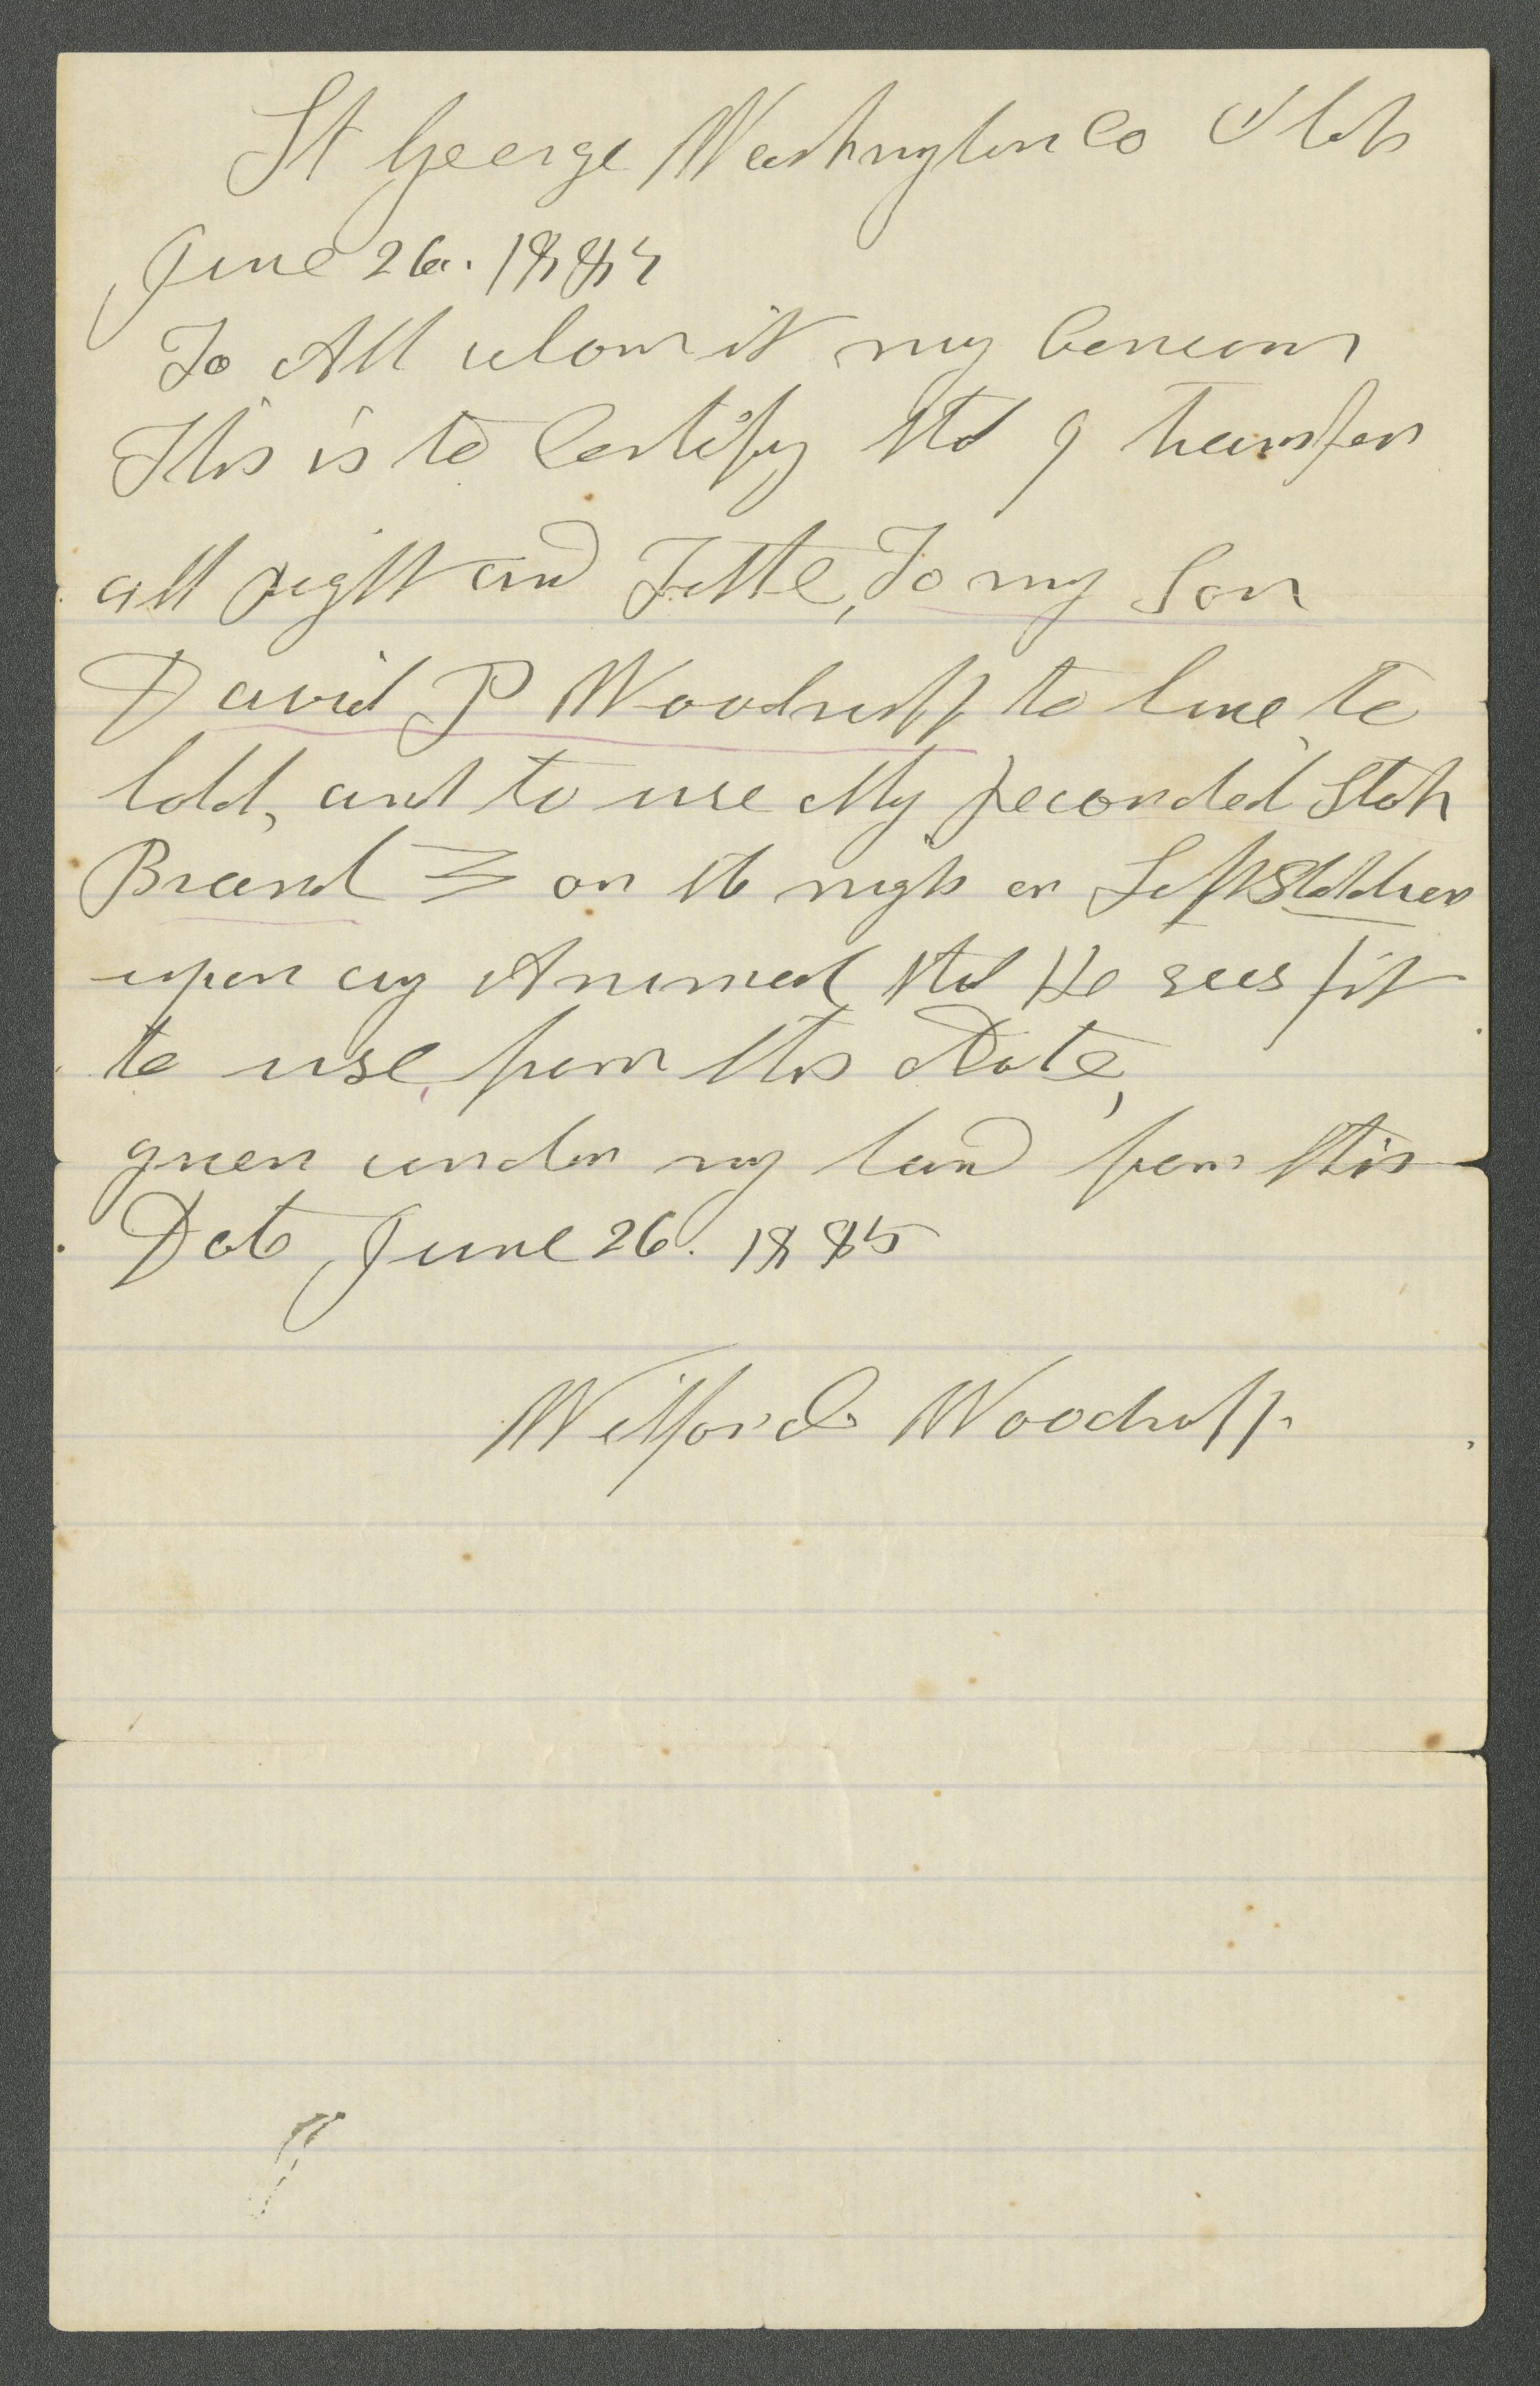 St George Washington Co Utah
June 26. 1885
To All whom it may Concern
This is to Certify that I transfer
all right and Title, To my Son
David P Woodruff to have, to
hold, and to use My recorded Stock
Brand on the right or Left Shoulder
upon any Animal that He sees fit
to use from this Date,
given under my hand from this
Date June 26. 1885
Wilford Woodruff